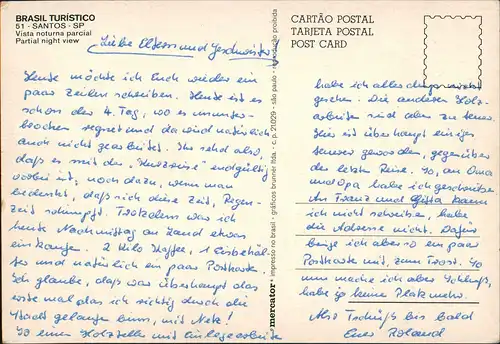 BRASIL TURÍSTICO
51 - SANTOS - SP
Vista noturna parcial
Partial night view
Liebe Eltern und Geschwister
Heute möchte ich Euch wieder ein
paar Zeilen schreiben. Heute ist es
schon der 4. Tag, wo es ununter-
brochen regnet und da wird natürlich
auch nicht gearbeitet. Ihr seht also,
daß es mit der "Kurzreise" endgültig
vorbei ist; noch dazu, wenn man
bedenkt, daß sich diese Zeit, Regen-
zeit schimpft. Trotzdem war ich
heute Nachmittag an Land etwas
einkaufen. 2 Kilo Kaffee, 1
und natürlich ein paar Postkarten.
Ich glaube, daß war überhaupt das
erste mal das ich richtig durch die
Stadt gelaufen bin, mit
So eine mit Einlegearbeiten
mercator® - impresso no brasil - gráficos brunner ltda. - c. p. 21.029 - são paulo - reprodução proibida
CARTÃO POSTAL
TARJETA POSTAL
POST CARD
habe ich allerdings nicht
gesehen. Die anderen Holz-
arbeiten sind aber zu teuer.
Hier ist überhaupt einiges
teurer geworden, gegenüber
der letzten Reise. So, an Oma
und Opa habe ich geschrieben.
An Franz und Gitta kann
ich nicht schreiben, habe
die Adresse nicht. Dafür
ich aber so ein paar
Postkarten mit, zum Trost. So
nun mache ich aber Schluß,
habe ja keine Platz mehr.
Also Tschüß bis bald
Euer Roland